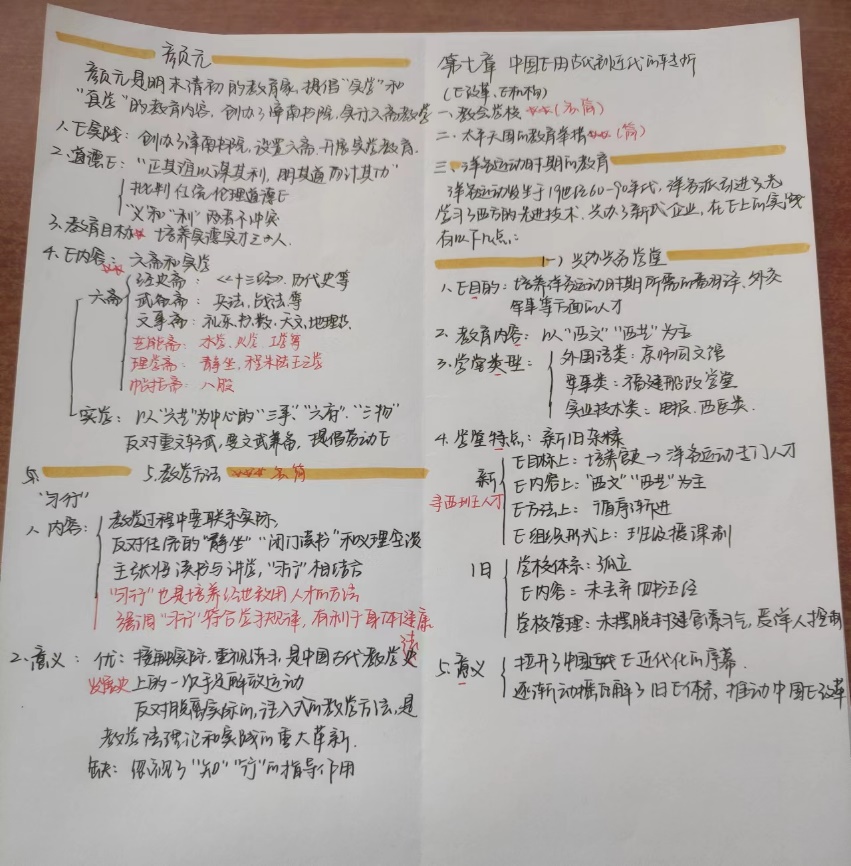 颜元
颜元是明末清初的教育家,提倡"实学"和
"真学"的教育内容,创办了漳南书院,实行六斋教学
1、E实践:创办了漳南书院,设置六斋,开展实学教育.
2、道德E:"正其谊以谋其利,明其道而计其功"
批判传统伦理道德E
"义"和"利"两者不冲突
3、教育目标 培养实德实才之人.
4、E内容:六斋和实学
六斋
经史斋:《十三经》、历代史等
武备斋:兵法、战法等
文事斋:礼、乐、书、数、天文、地理等.
艺能斋:水学、火学、工学等
理学斋:静坐、程朱陆王之学
帖括斋:八股
实学:以"六艺"为中心的"三事"、"六府"、"三物"
反对重文轻武,要文武兼备,提倡劳动E
5、
5.教学方法 简
"习行"
1、内容:
教学过程中要联系实际,
反对传统的"静坐""闭门读书"和义理空谈
主张将读书与讲学,"习行"相结合
"习行"也是培养经世致用人才的方法
强调"习行"符合学习规律,有利于身体健康
2、意义:优:接触实际,重视练习,是中国古代教学法
发展史上的一次手足解放运动
反对脱离实际的,注入式的教学方法,是
教学法理论和实践的重大革新.
缺:忽视了"知""行"的指导作用
第七章 中国E由古代到近代的转折
(E改革、E机构)
一、教会学校 (简)
二、太平天国的教育举措 (简)
三、洋务运动时期的教育
洋务运动发生于19世纪60-90年代,洋务派引进了先
学习了西方的先进技术,兴办了新式企业,在E上的实践
有以下几点:
(一)兴办洋务学堂
1、E目的:培养洋务运动时期所需的翻译、外交
军事等方面的人才
2、教育内容:以"西文""西艺"为主
3、学堂类型:
外国语类:京师同文馆
军事类:福建船政学堂
实业技术类:电报、西医类.
4、学堂特点:新旧杂糅
新
寻西班王人才
E目标上:培养官吏→洋务运动专门人才
E内容上:"西文""西艺"为主
E方法上:循序渐进
E组织形式上:班级授课制
旧
学校体系:孤立
E内容:未丢弃四书五经
学校管理:未摆脱封建官僚习气,受洋人控制
5、意义
拉开了中国传统E近代化的序幕.
逐渐动摇瓦解了旧E体系,推动中国E改革